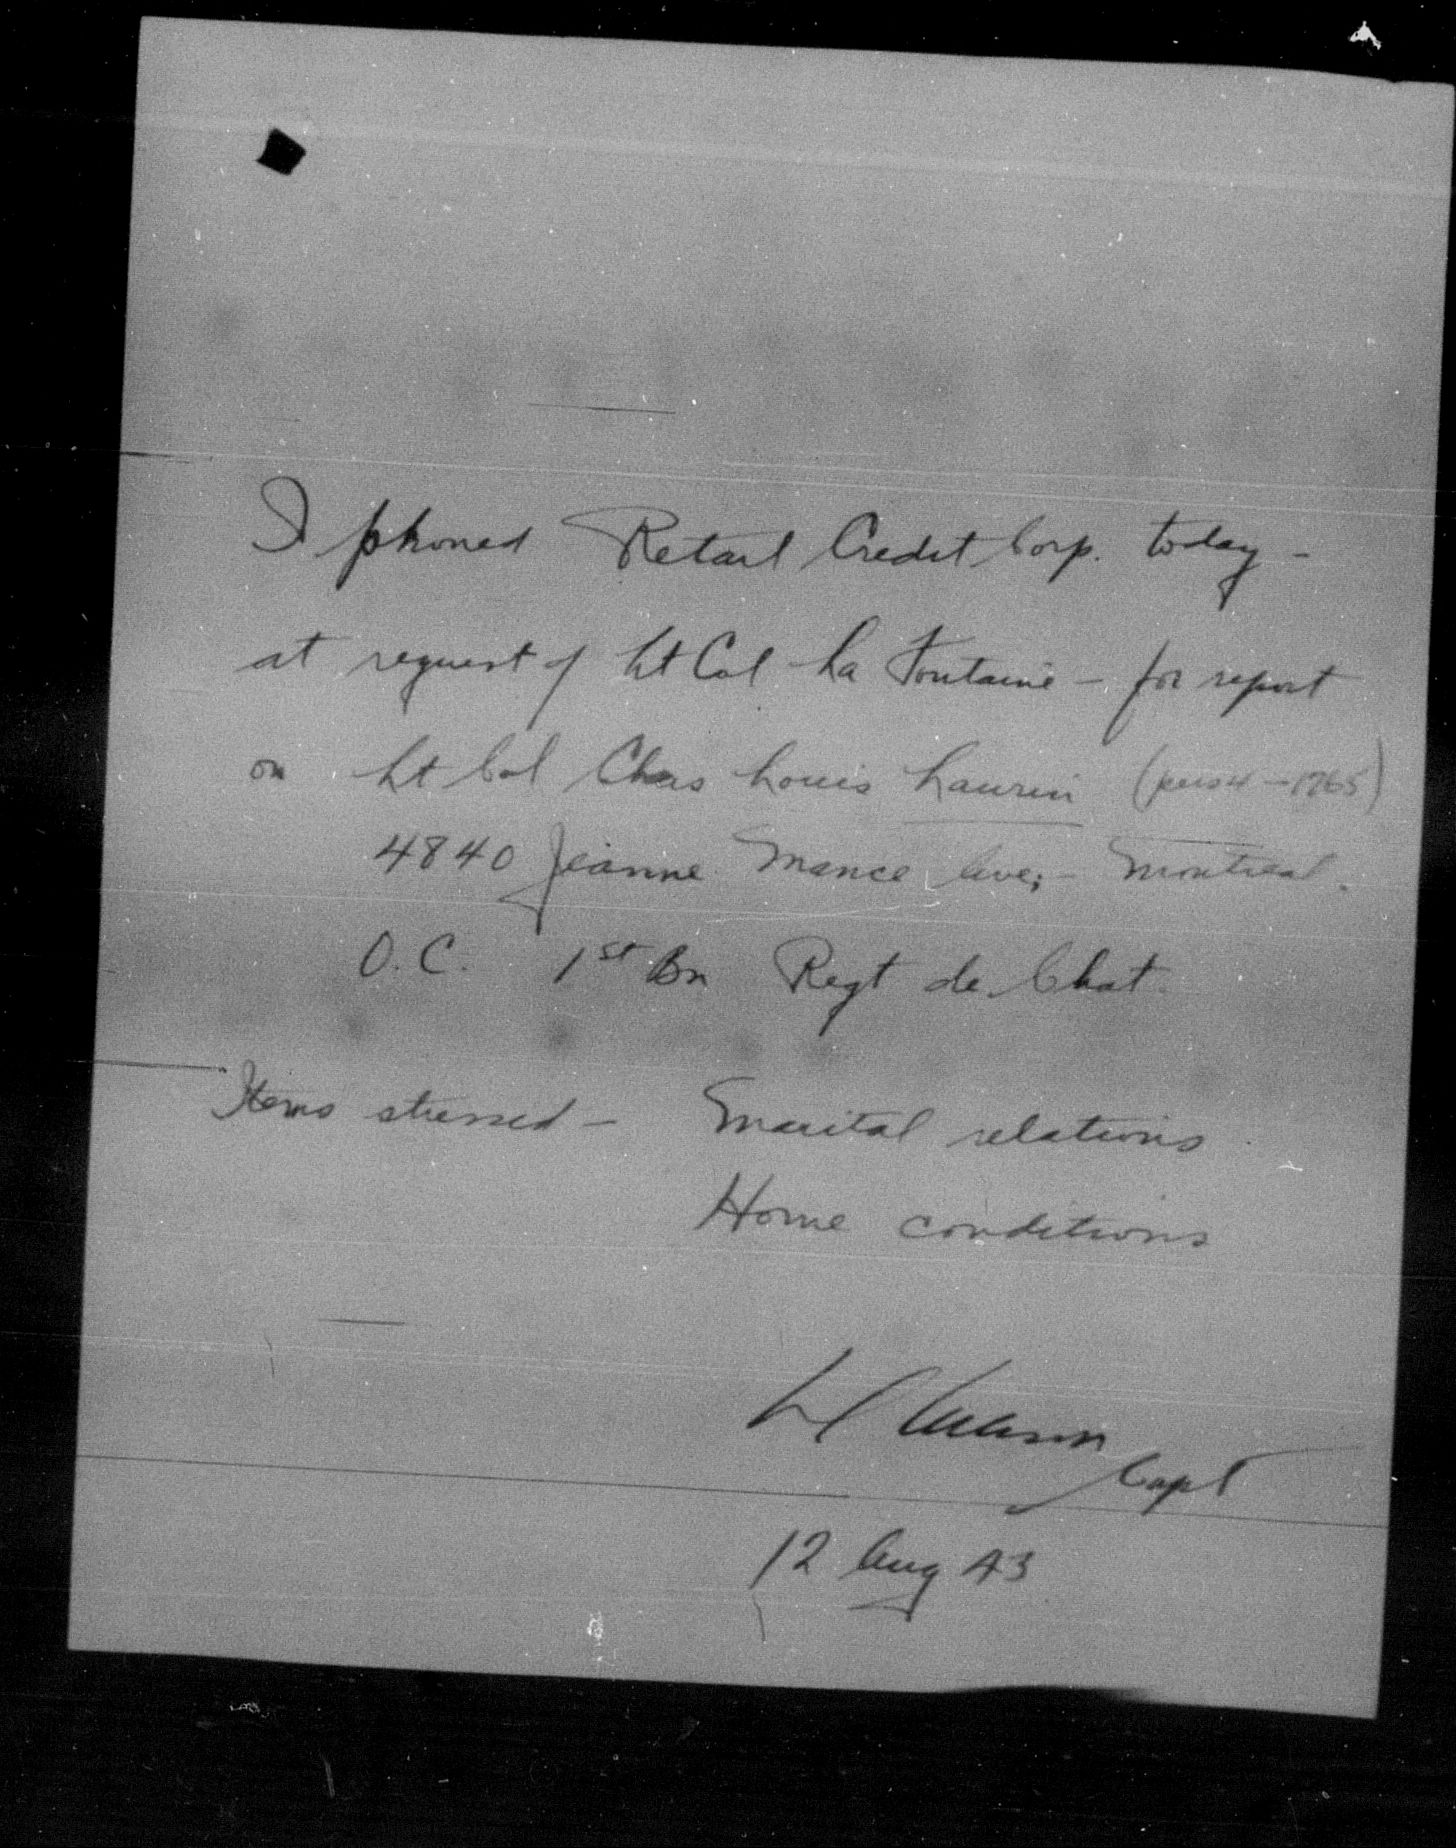 I phoned Retail Credit Corp. today –
at request of Lt Col La Fontaine – for report
on Lt Col Chas Louis Laurin ( – 1765)
4840 Jeanne Mance Ave; – Montreal.
O.C. 1st Bn Regt de Chat.
Items stressed – Marital relations
Home conditions
Capt
12 Aug 43